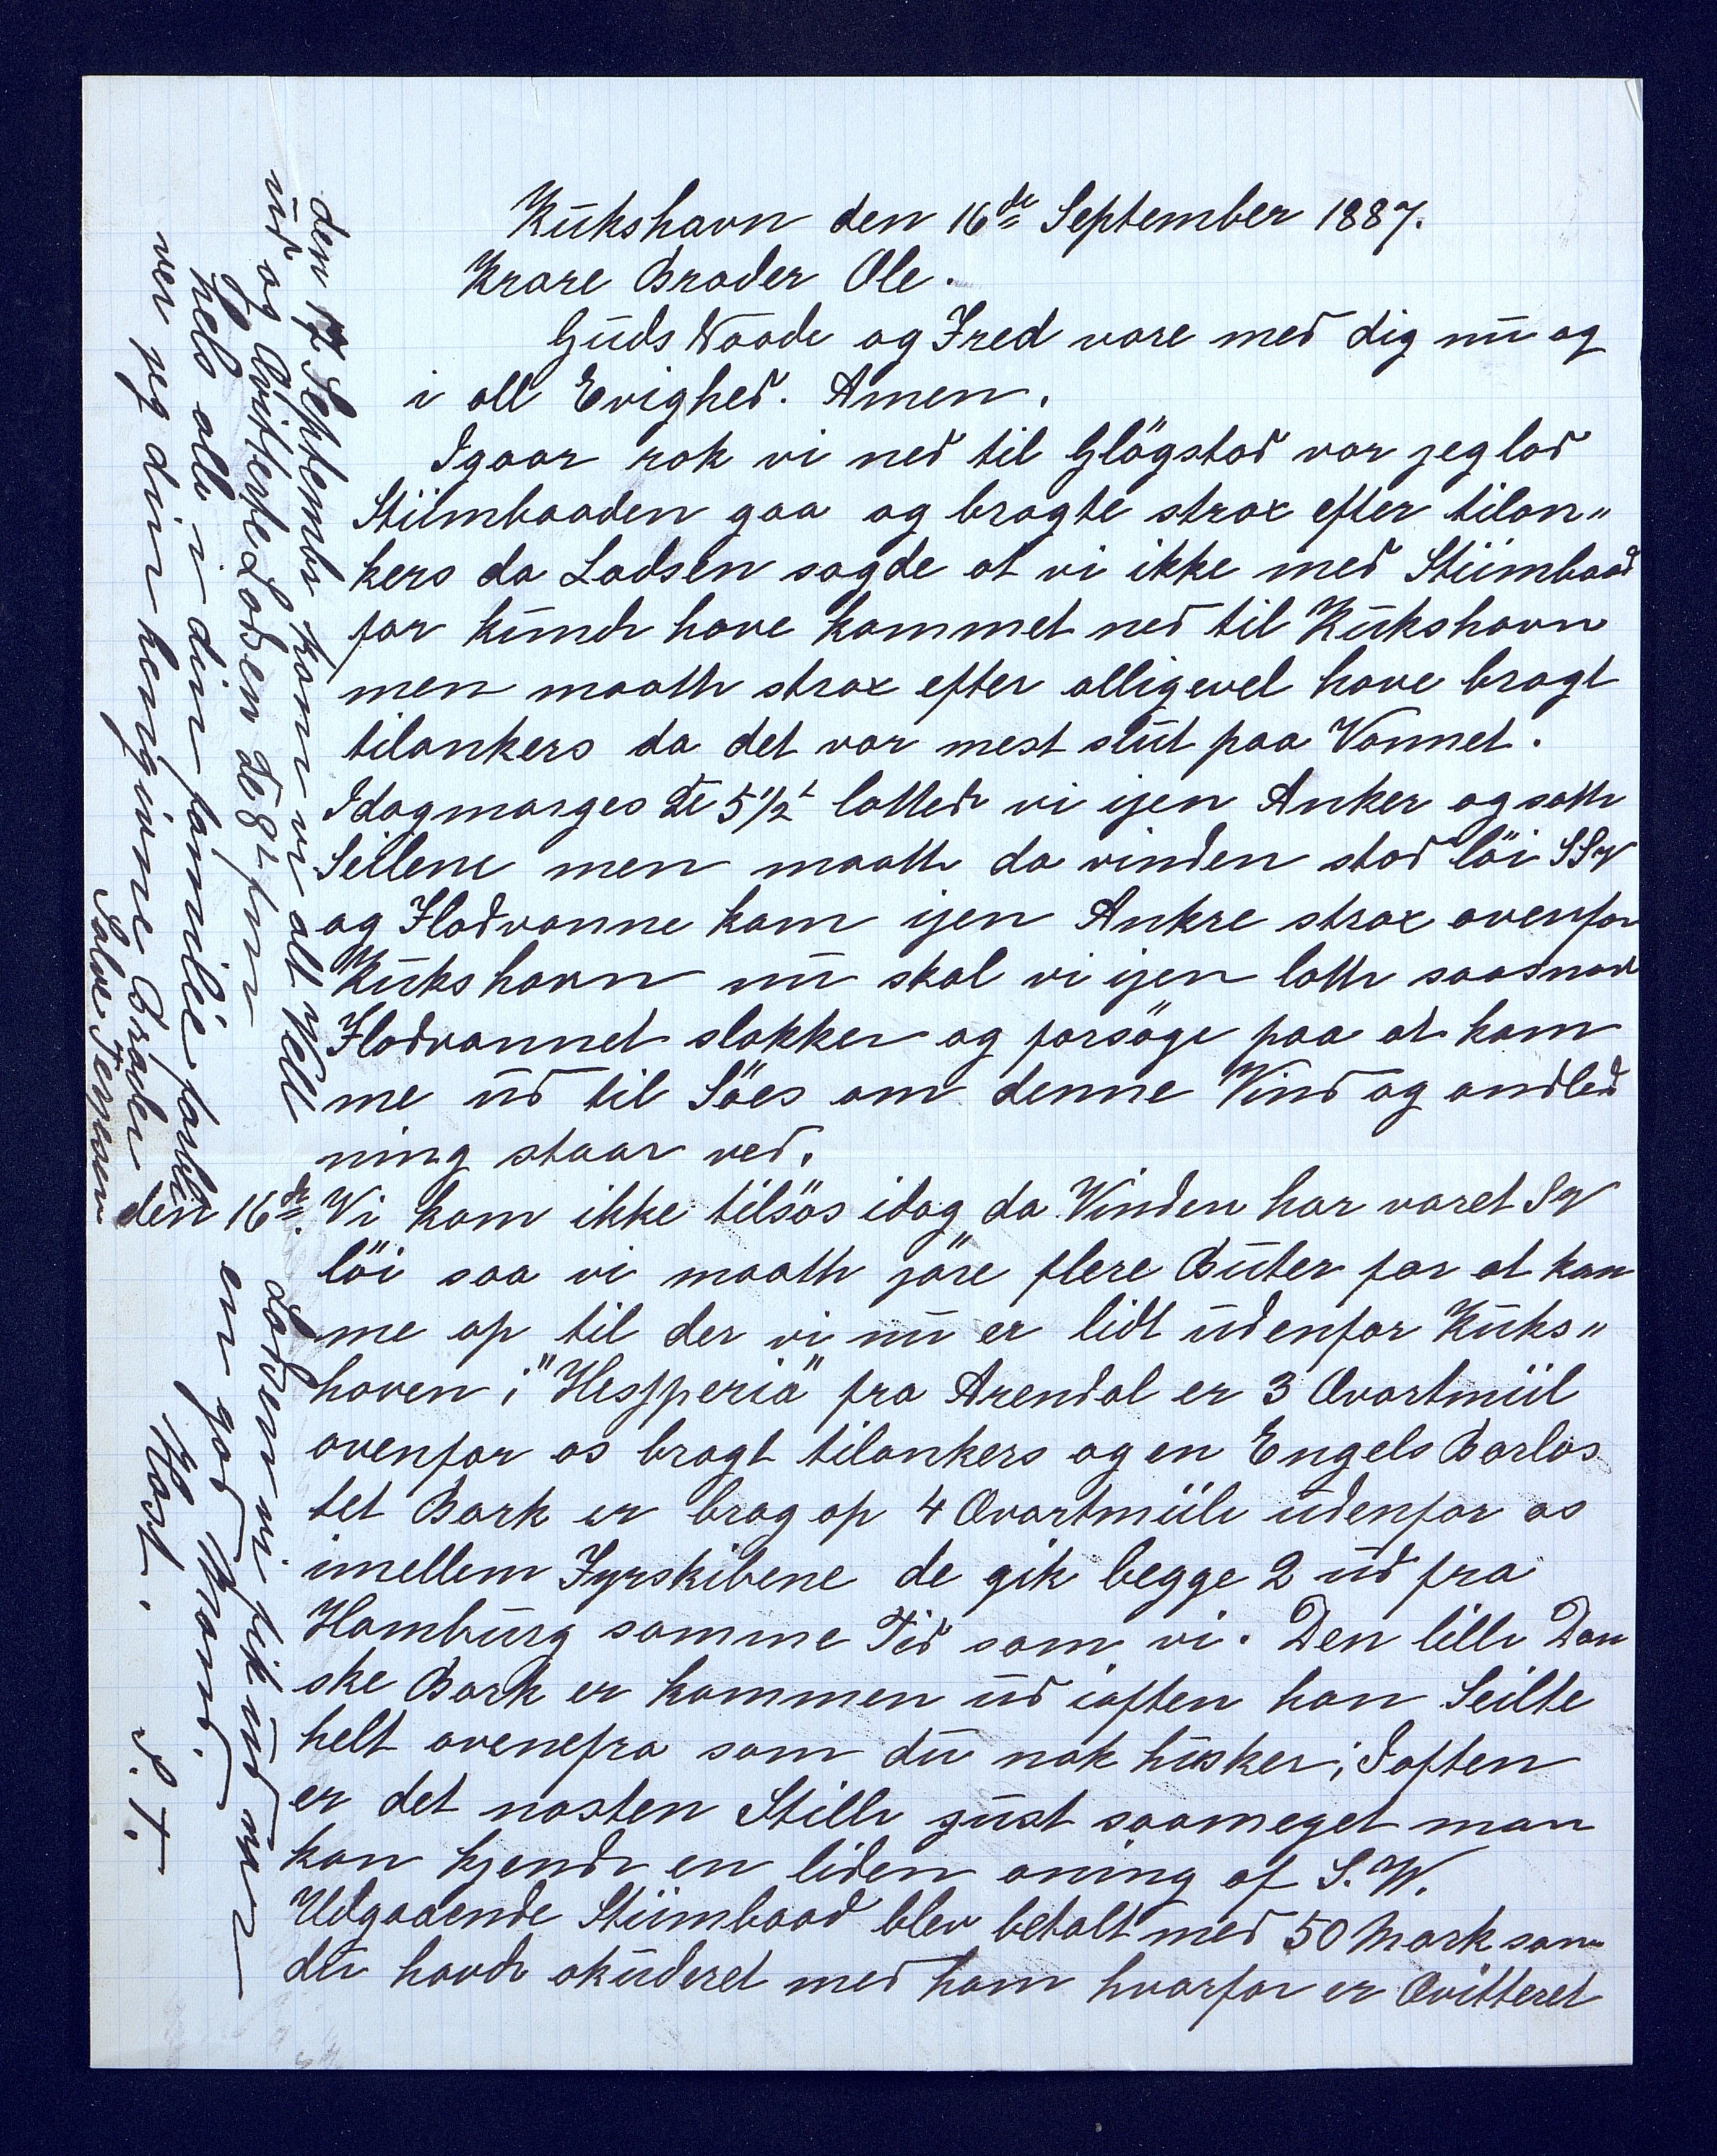 Kukshavn den 16de September 1887.
Krare Broder Ole.
Guds Naade og Fred vare med dig nu og
i all Evighed. Amen.
Igaar rak vi ned til Glögstad var jeg lod
Stiimbaaden gaa og bragte strax efter tilan„
kers da Lodsen sagde at vi ikke med Stiimbaad
for kunde have kommet ned til Kukshavn
men maatte strax efter alligevel have bragt
tilankers da det var mest slut paa Vannet.
Idagmorges Kl 5 1/2 lattede vi ijen Anker og satte
Seilene men maatte da vinden stod löi SSW
og Flodvanne kam ijen Ankre strax ovenfor
Kukshavn nu skal vi ijen latte saasnart
Flodvannet slakker og forsöge paa at kom
me ud til Söes om denne Vind og andled
ning staar ved.
den 16de. Vi kom ikke tilsös idag da Vinden har varet SW
löi saa vi maatte jöre flere Buter for at kom
me op til der vi nu er lidt udenfor Kuks„
haven; "Hesperia" fra Arendal er 3 Qvartmiil
ovenfor os bragt tilankers og en Engels Barlas
tet Bark er brag op 4 Qvartmiile udenfor os
imellem Fyrskibene de gik begge 2 ud fra
Hamburg samme Tid som vi. Den lille Dan
ske Bark er kommen ud iaften han Seilte
helt ovenefra som du nok husker; Iaften
er det nasten Stille just saameget man
kan kjende en liden aning af S.W.
Udgaaende Stiimbaad blev betalt med 50 Mark som
du havde akuderet med ham hvorfor er Qvitteret
den 17 September kom vi alt Vell
ud og Qvitterte Lodsen Kl 8 L fm
hels alle i din familie forbli
ver jeg din hengivne Broder
Salve Terjesen
Lodsen vi fik ud var
en god Mand.
Hast. S. T.